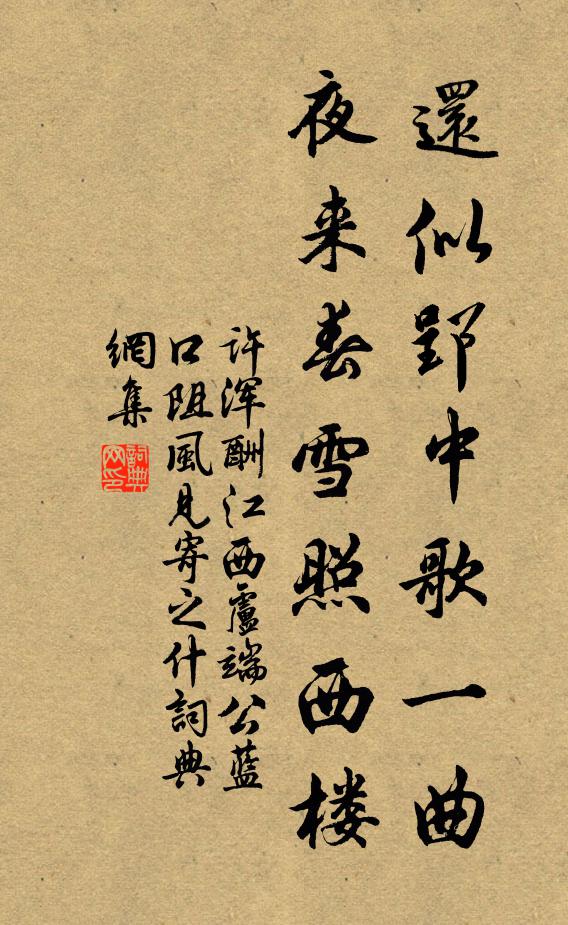 還似郢中歌一曲
夜来春雪照西楼
许浑酬江西盧端公藍
口阻風見寄之什詞典
網集
詞典網印